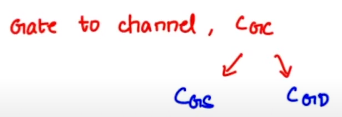 Gate to channel, CGC
CGS CGD